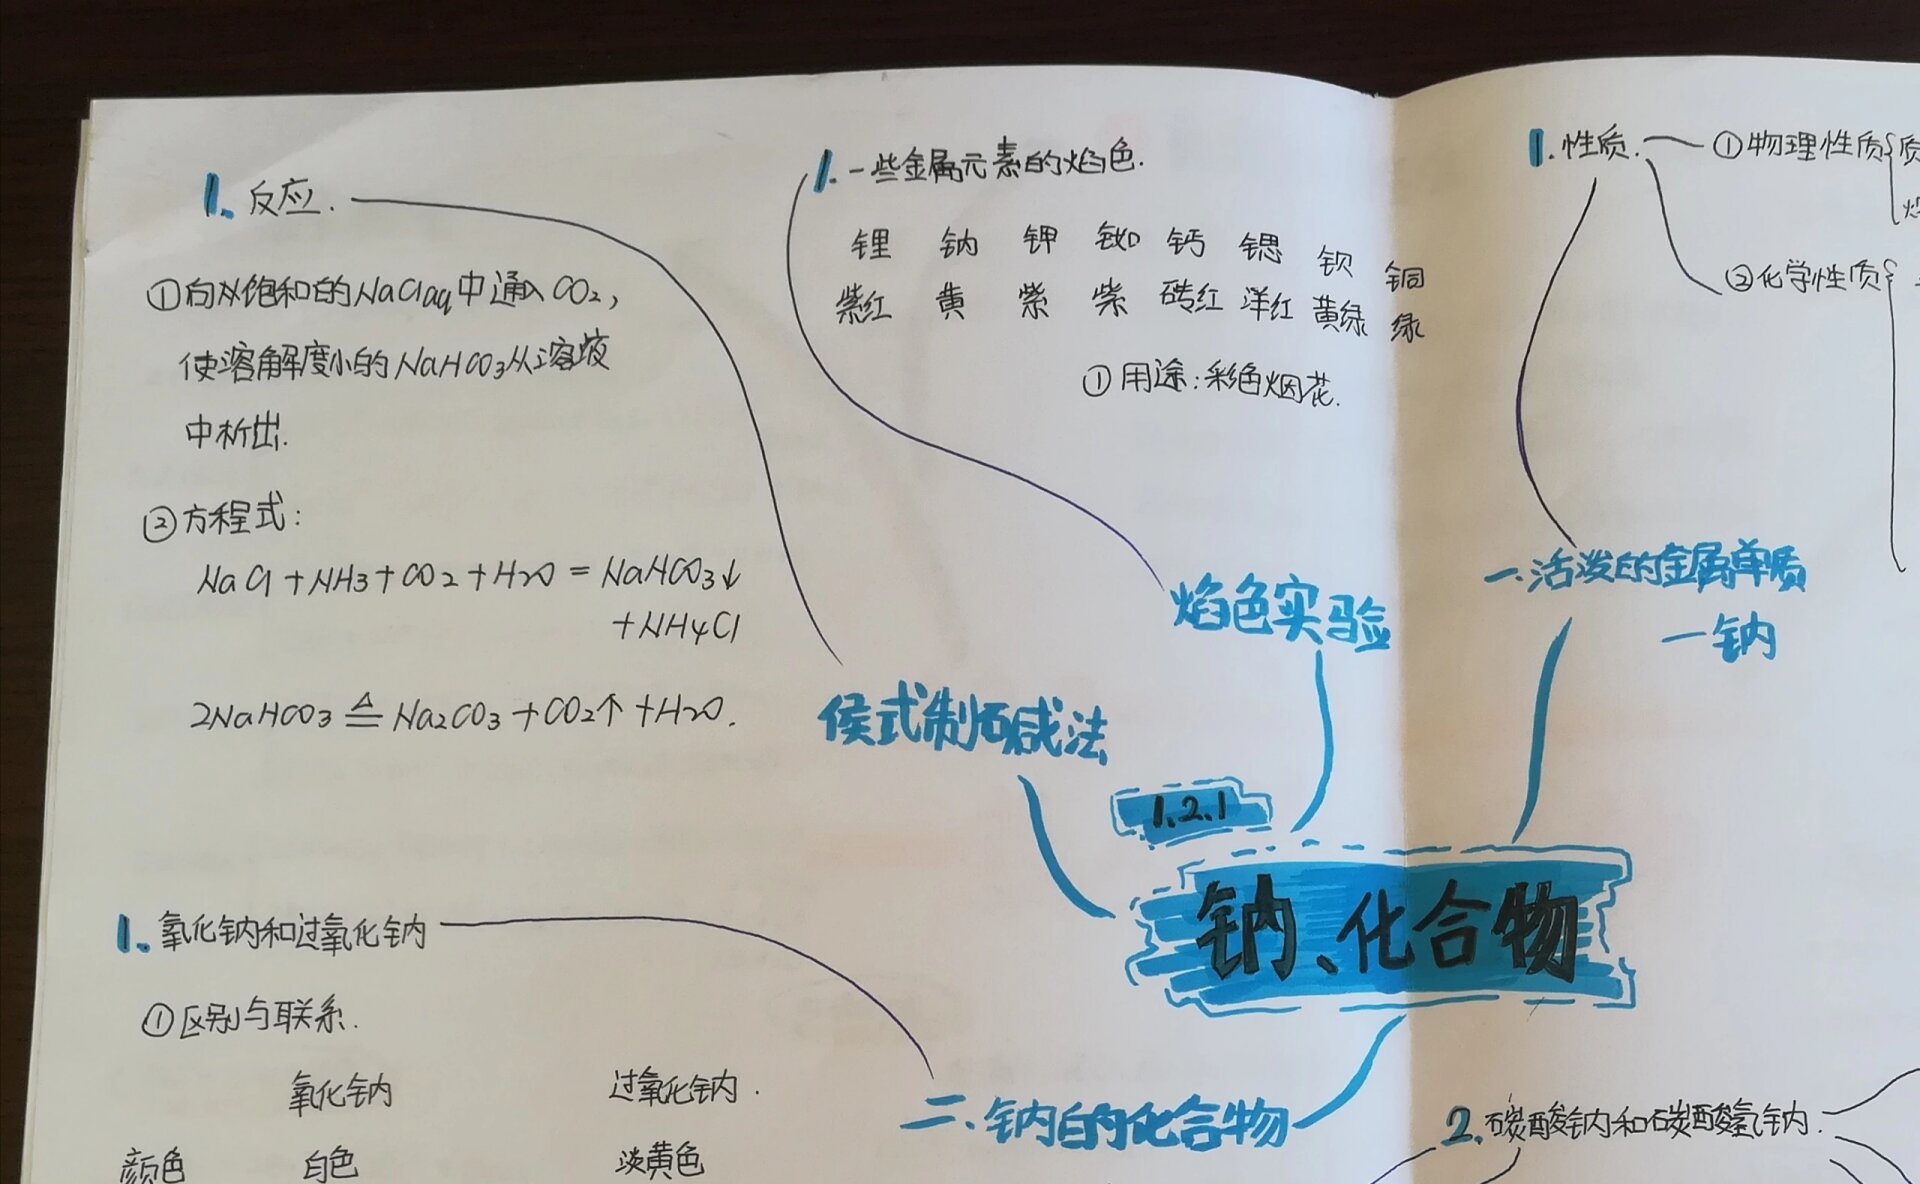 1. 反应.
①向双饱和的NaClaq中通入CO2,
使溶解度小的NaHCO3从溶液
中析出.
②方程式:
NaCl+NH3+CO2+H2O=NaHCO3↓
+NH4Cl
2NaHCO3 ≜ Na2CO3+CO2↑+H2O.
侯式制碱法
1. 一些金属元素的焰色.
锂 钠 钾 铷 钙 锶 钡 铜
紫红 黄 紫 紫 砖红 洋红 黄绿 绿
①用途:彩色烟花.
焰色实验
1. 性质.
①物理性质
质
②化学性质
一.活泼的金属单质
—钠
1.2.1
钠、化合物
1、氧化钠和过氧化钠
①区别与联系.
氧化钠 过氧化钠.
颜色 白色 淡黄色
二.钠的化合物
2.碳酸钠和碳酸氢钠.